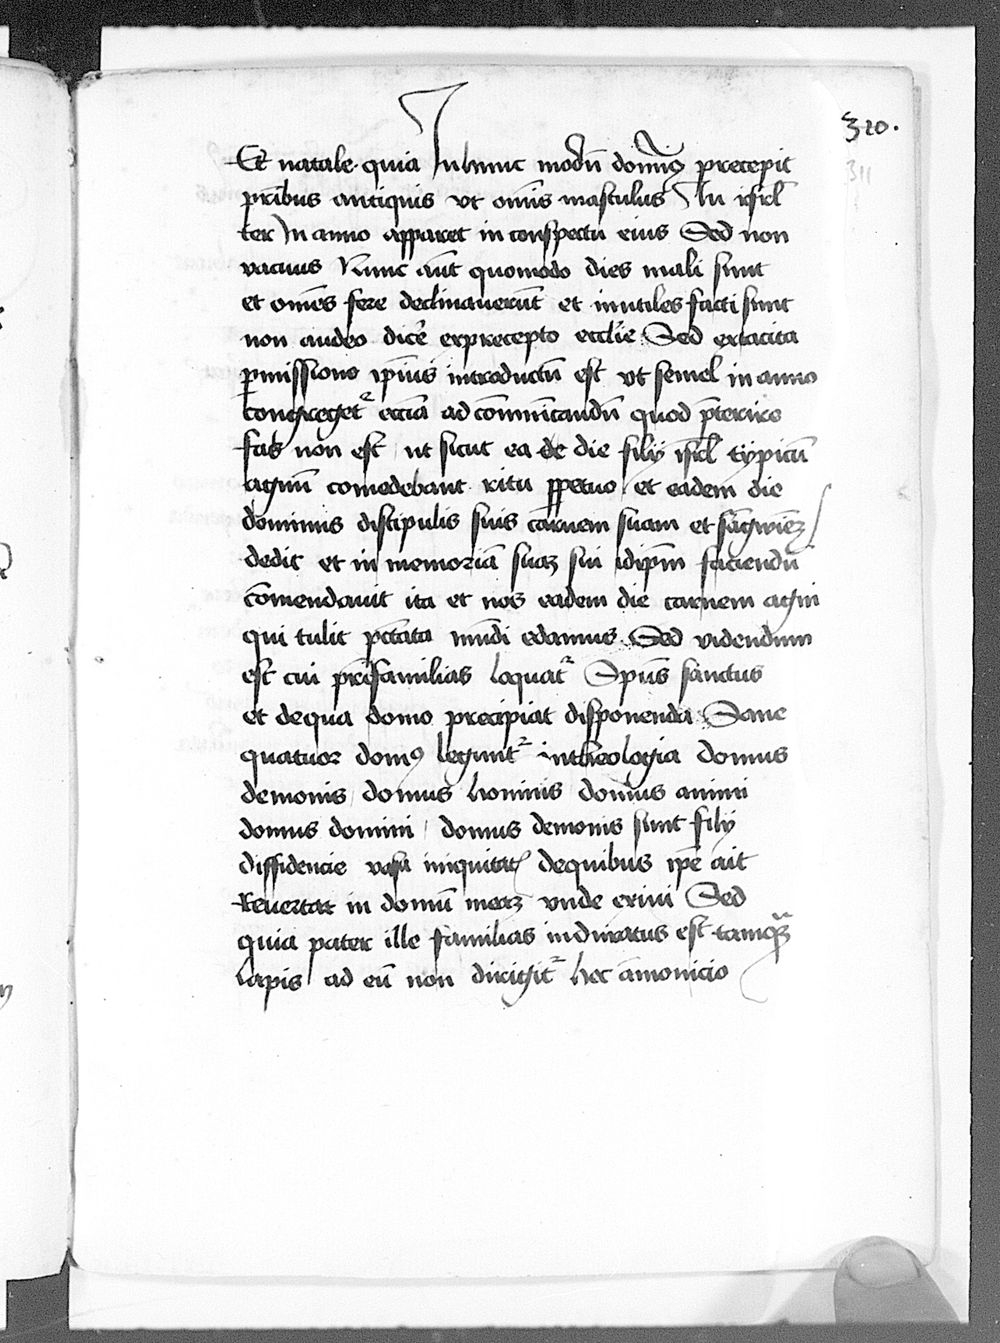 320.
311
Et natale. quia Inhunc modū domīꝯ precepit
pr̄ibus antiquis vt om̄is masculus In isrl̄
ter In anno apparet in conspectu eius Sed non
vacuus Nunc aūt quomodo dies mali sunt
et om̄es fere declinauerūt et inutiles facti sunt
non audeo dicē exprecepto eccl̄ie Sed extacita
ꝑmissione ip̄ius introductū est vt semel in anno
congregetᷣ eccīa ad cōmūicandū quod p̄terire
fas non est / ut sicut ea de die filij isrl̄ typicū
agnū comedebant ritu ꝑpetuo / et eadem die
dominus discipulis suis carnem suam et sāgwinēꝫ
dedit et in memoriā suaꝫ sui idip̄m faciendū
cōmendauit ita et nos eadem die carnem agni
qui tulit pc̄cata mūdi edamus Sed videndum
est cui pr̄isfamilias loquatᷣ Spūs sanctus
et dequa domo precipiat disponenda Sane
quatuor domꝯ leguntᷣ intheologia domus
demonis / domus hominis / domus animi
domus domini / domus demonis sunt filij
diffidencie vasa iniquitatꝭ dequibus ip̄e ait
Reuertar in domū meaꝫ vnde exiui Sed
quia pater ille familias induratus est tamqꝫ̄
lapis ad eū non dirigitᷣ hec āmonicio